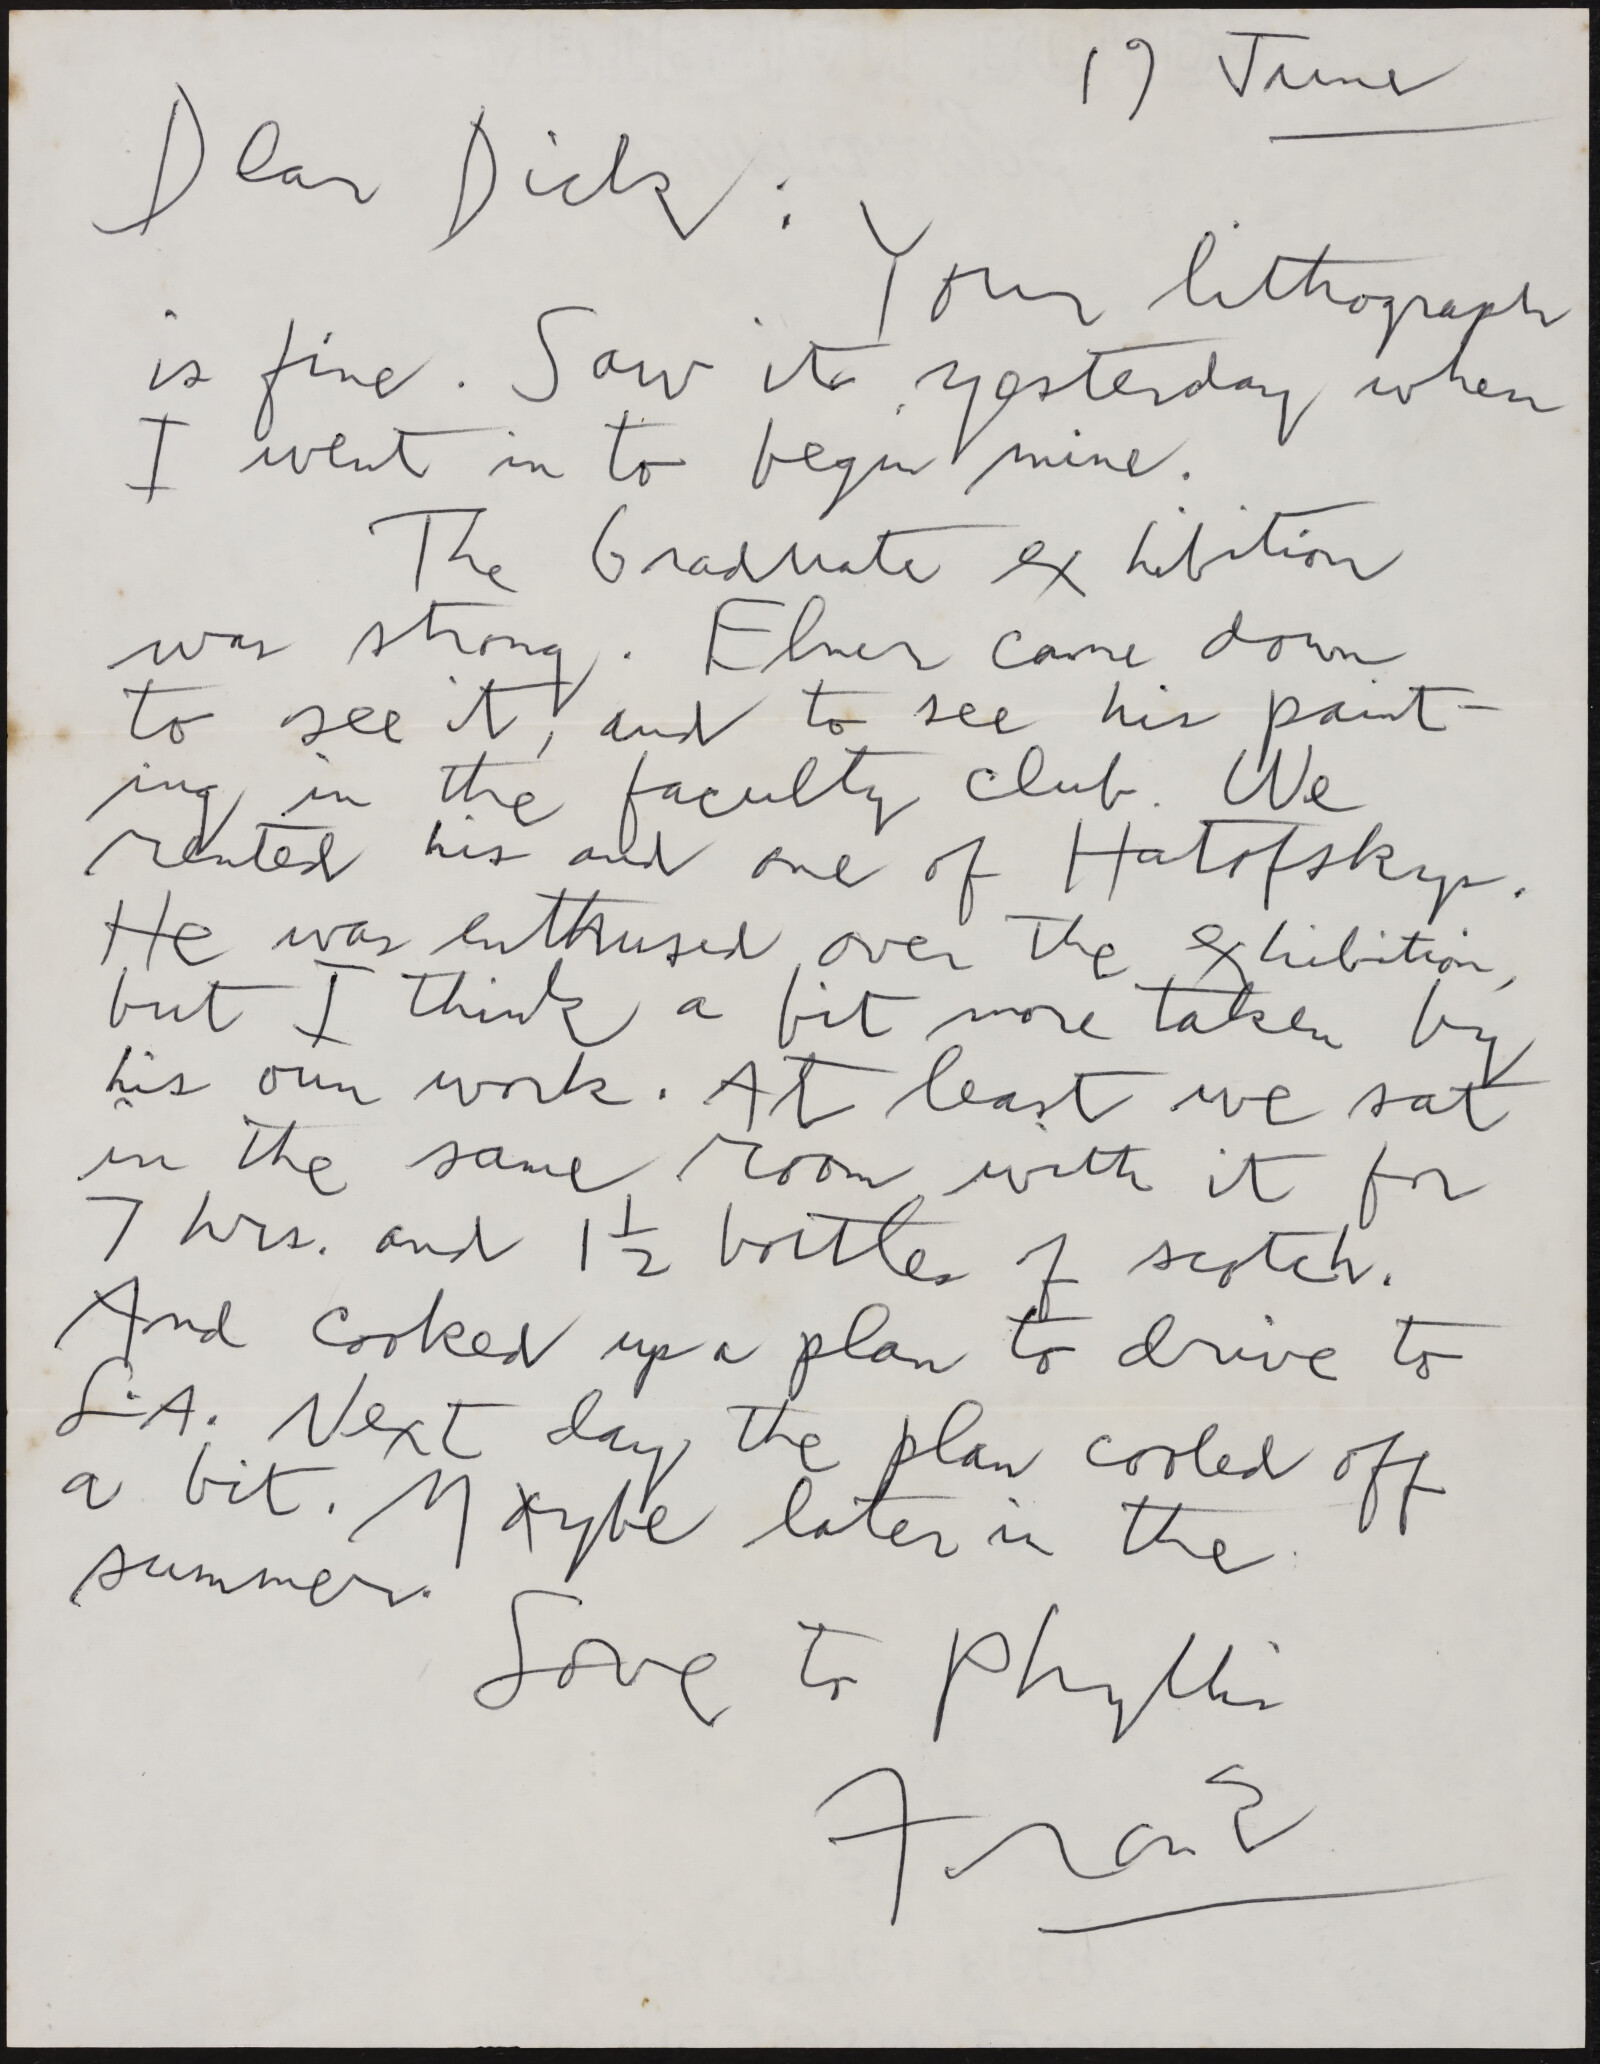 19 June
Dear Dick:
Your lithograph
is fine. Saw it yesterday when
I went in to begin mine.
The Graduate exhibition
was strong. Elmer came down
to see it, and to see his paint-
ing in the faculty club. We
rented his and one of Hatofskys.
He was enthused over the exhibition,
but I think a bit more taken by
his own work. At least we sat
in the same room with it for
7 hrs. and 1½ bottles of scotch.
And cooked up a plan to drive to
L.A. Next day the plan cooled off
a bit. Maybe later in the
summer.
Love to Phyllis
Frank